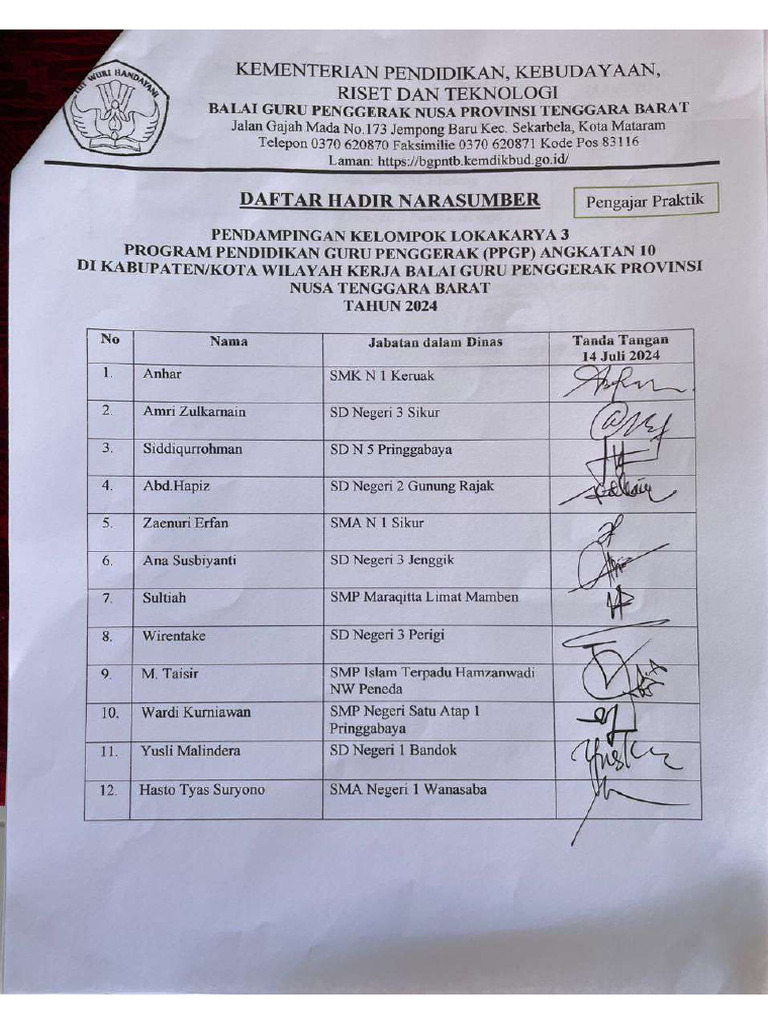 WURI HANDAYANI
KEMENTERIAN PENDIDIKAN, KEBUDAYAAN,
RISET DAN TEKNOLOGI
BALAI GURU PENGGERAK NUSA PROVINSI TENGGARA BARAT
Jalan Gajah Mada No.173 Jempong Baru Kec. Sekarbela, Kota Mataram
Telepon 0370 620870 Faksimilie 0370 620871 Kode Pos 83116
Laman: https://bgpntb.kemdikbud.go.id/
DAFTAR HADIR NARASUMBER
Pengajar Praktik
PENDAMPINGAN KELOMPOK LOKAKARYA 3
PROGRAM PENDIDIKAN GURU PENGGERAK (PPGP) ANGKATAN 10
DI KABUPATEN/KOTA WILAYAH KERJA BALAI GURU PENGGERAK PROVINSI
NUSA TENGGARA BARAT
TAHUN 2024
No Nama Jabatan dalam Dinas Tanda Tangan
14 Juli 2024
1. Anhar SMK N 1 Keruak
2. Amri Zulkarnain SD Negeri 3 Sikur
3. Siddiqurrohman SD N 5 Pringgabaya
4. Abd.Hapiz SD Negeri 2 Gunung Rajak
5. Zaenuri Erfan SMA N 1 Sikur
6. Ana Susbiyanti SD Negeri 3 Jenggik
7. Sultiah SMP Maraqitta Limat Mamben
8. Wirentake SD Negeri 3 Perigi
9. M. Taisir SMP Islam Terpadu Hamzanwadi
NW Peneda
10. Wardi Kurniawan SMP Negeri Satu Atap 1
Pringgabaya
11. Yusli Malindera SD Negeri 1 Bandok
12. Hasto Tyas Suryono SMA Negeri 1 Wanasaba